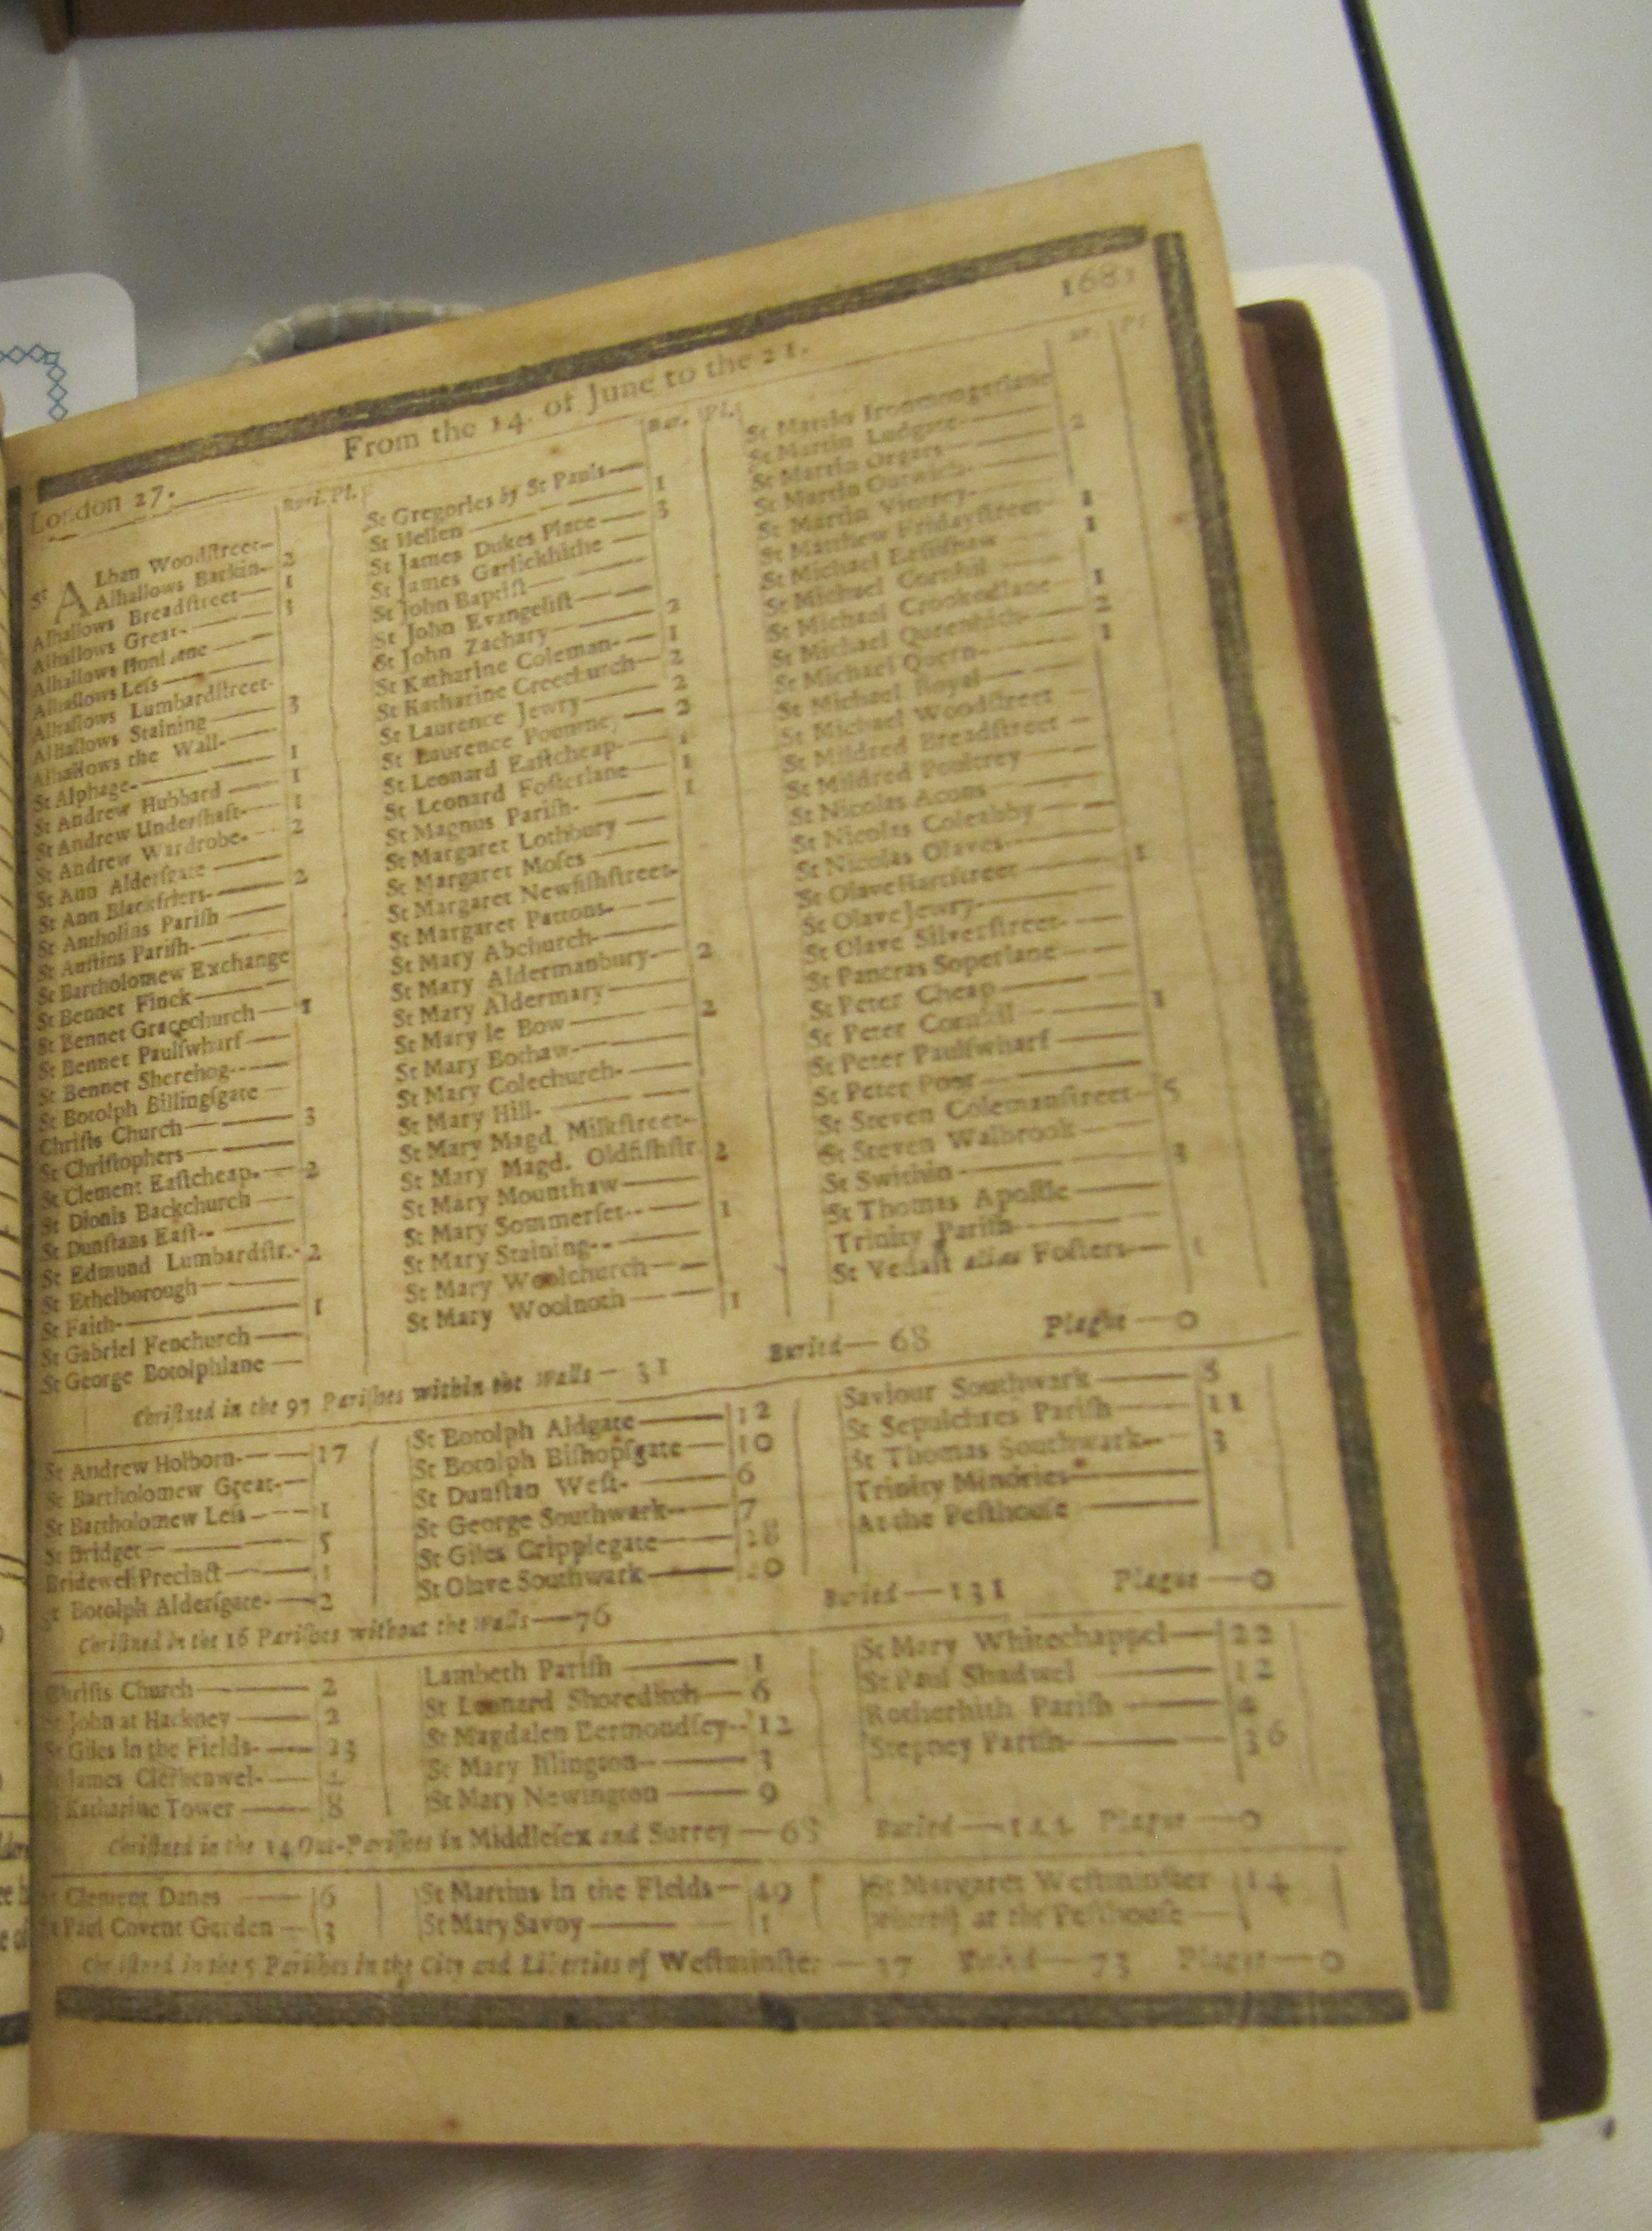 London 27. From the 14. of June to the 21. 168
Buri. Pl.
St ALban Woodstreet
Alhallows Barkin 2
Alhallows Breadstreet 1
Alhallows Great 3
Alhallows Honilane
Alhallows Less
Alhallows Lumbardstreet
Alhallows Staining 3
Alhallows the Wall
St Alphage 1
St Andrew Hubbard 1
St Andrew Undershaft 1
St Andrew Wardrobe 2
St Ann Aldersgate
St Ann Blackfriers 2
St Antholins Parish
St Austins Parish
St Bartholomew Exchange
St Bennet Finck
St Bennet Gracechurch 1
St Bennet Paulswharf
St Bennet Sherehog
St Botolph Billingsgate
Christs Church 3
St Christophers
St Clement Eastcheap 2
St Dionis Backchurch
St Dunstans East
St Edmund Lumbardstr. 2
St Ethelborough
St Faith 1
St Gabriel Fenchurch
St George Botolphlane
Bur. Pl.
St Gregories by St Pauls
St Hellen 1
St James Dukes Place 3
St James Garlickhithe
St John Baptist
St John Evangelist
St John Zachary 2
St Katharine Coleman 1
St Katharine Creechurch 2
St Laurence Jewry 2
St Laurence Pountney 2
St Leonard Eastcheap 1
St Leonard Fosterlane 1
St Magnus Parish 1
St Margaret Lothbury
St Margaret Moses
St Margaret Newfishstreet
St Margaret Pattons
St Mary Abchurch
St Mary Aldermanbury 2
St Mary Aldermary
St Mary le Bow 2
St Mary Bothaw
St Mary Colechurch
St Mary Hill
St Mary Magd. Milkstreet
St Mary Magd. Oldfishstr. 2
St Mary Mounthaw
St Mary Sommerset 1
St Mary Staining
St Mary Woolchurch
St Mary Woolnoth 1
ur. Pl
St Martin Ironmongerlane
St Martin Ludgate 2
St Martin Orgars
St Martin Outwich
St Martin Vintrey 1
St Matthew Fridaystreet 1
St Michael Bassishaw
St Michael Cornhil 1
St Michael Crookedlane 2
St Michael Queenhith 1
St Michael Quern
St Michael Royal
St Michael Woodstreet
St Mildred Breadstreet
St Mildred Poultrey
St Nicolas Acons
St Nicolas Coleabby
St Nicolas Olaves 1
St Olave Hartstreet
St Olave Jewry
St Olave Silverstreet
St Pancras Soperlane
St Peter Cheap 1
St Peter Cornhil
St Peter Paulswharf
St Peter Poor
St Steven Colemanstreet 5
St Steven Walbrook
St Swithin 3
St Thomas Apostle
Trinity Parish
St Vedast alias Fosters 1
Christned in the 97 Parishes within the Walls — 31 Buried — 68 Plague — 0
St Andrew Holborn 17
St Bartholomew Great
St Bartholomew Less 1
St Bridget 5
Bridewel Precinct 1
St Botolph Aldersgate 2
St Botolph Aldgate 12
St Botolph Bishopsgate 10
St Dunstan West 6
St George Southwark 7
St Giles Cripplegate 28
St Olave Southwark 20
Saviour Southwark 8
St Sepulchres Parish 11
St Thomas Southwark 3
Trinity Minories
At the Pesthouse
Christned in the 16 Parishes without the Walls — 76 Buried — 131 Plague — 0
Christs Church 2
St John at Hackney 2
St Giles in the Fields 23
St James Clerkenwel
St Katharine Tower 8
Lambeth Parish 1
St Leonard Shoreditch 6
St Magdalen Bermondsey 12
St Mary Islington 3
St Mary Newington 9
St Mary Whitechappel 22
St Paul Shadwel 12
Rotherhith Parish 4
Stepney Parish 36
Christned in the 14 Out-Parishes in Middlesex and Surrey — 68 Buried — 144 Plague — 0
St Clement Danes 6
St Paul Covent Garden 3
St Martins in the Fields 49
St Mary Savoy 1
St Margaret Westminster 14
whereof at the Pesthouse
Christned in the 5 Parishes in the City and Liberties of Westminster — 37 Buried — 73 Plague — 0